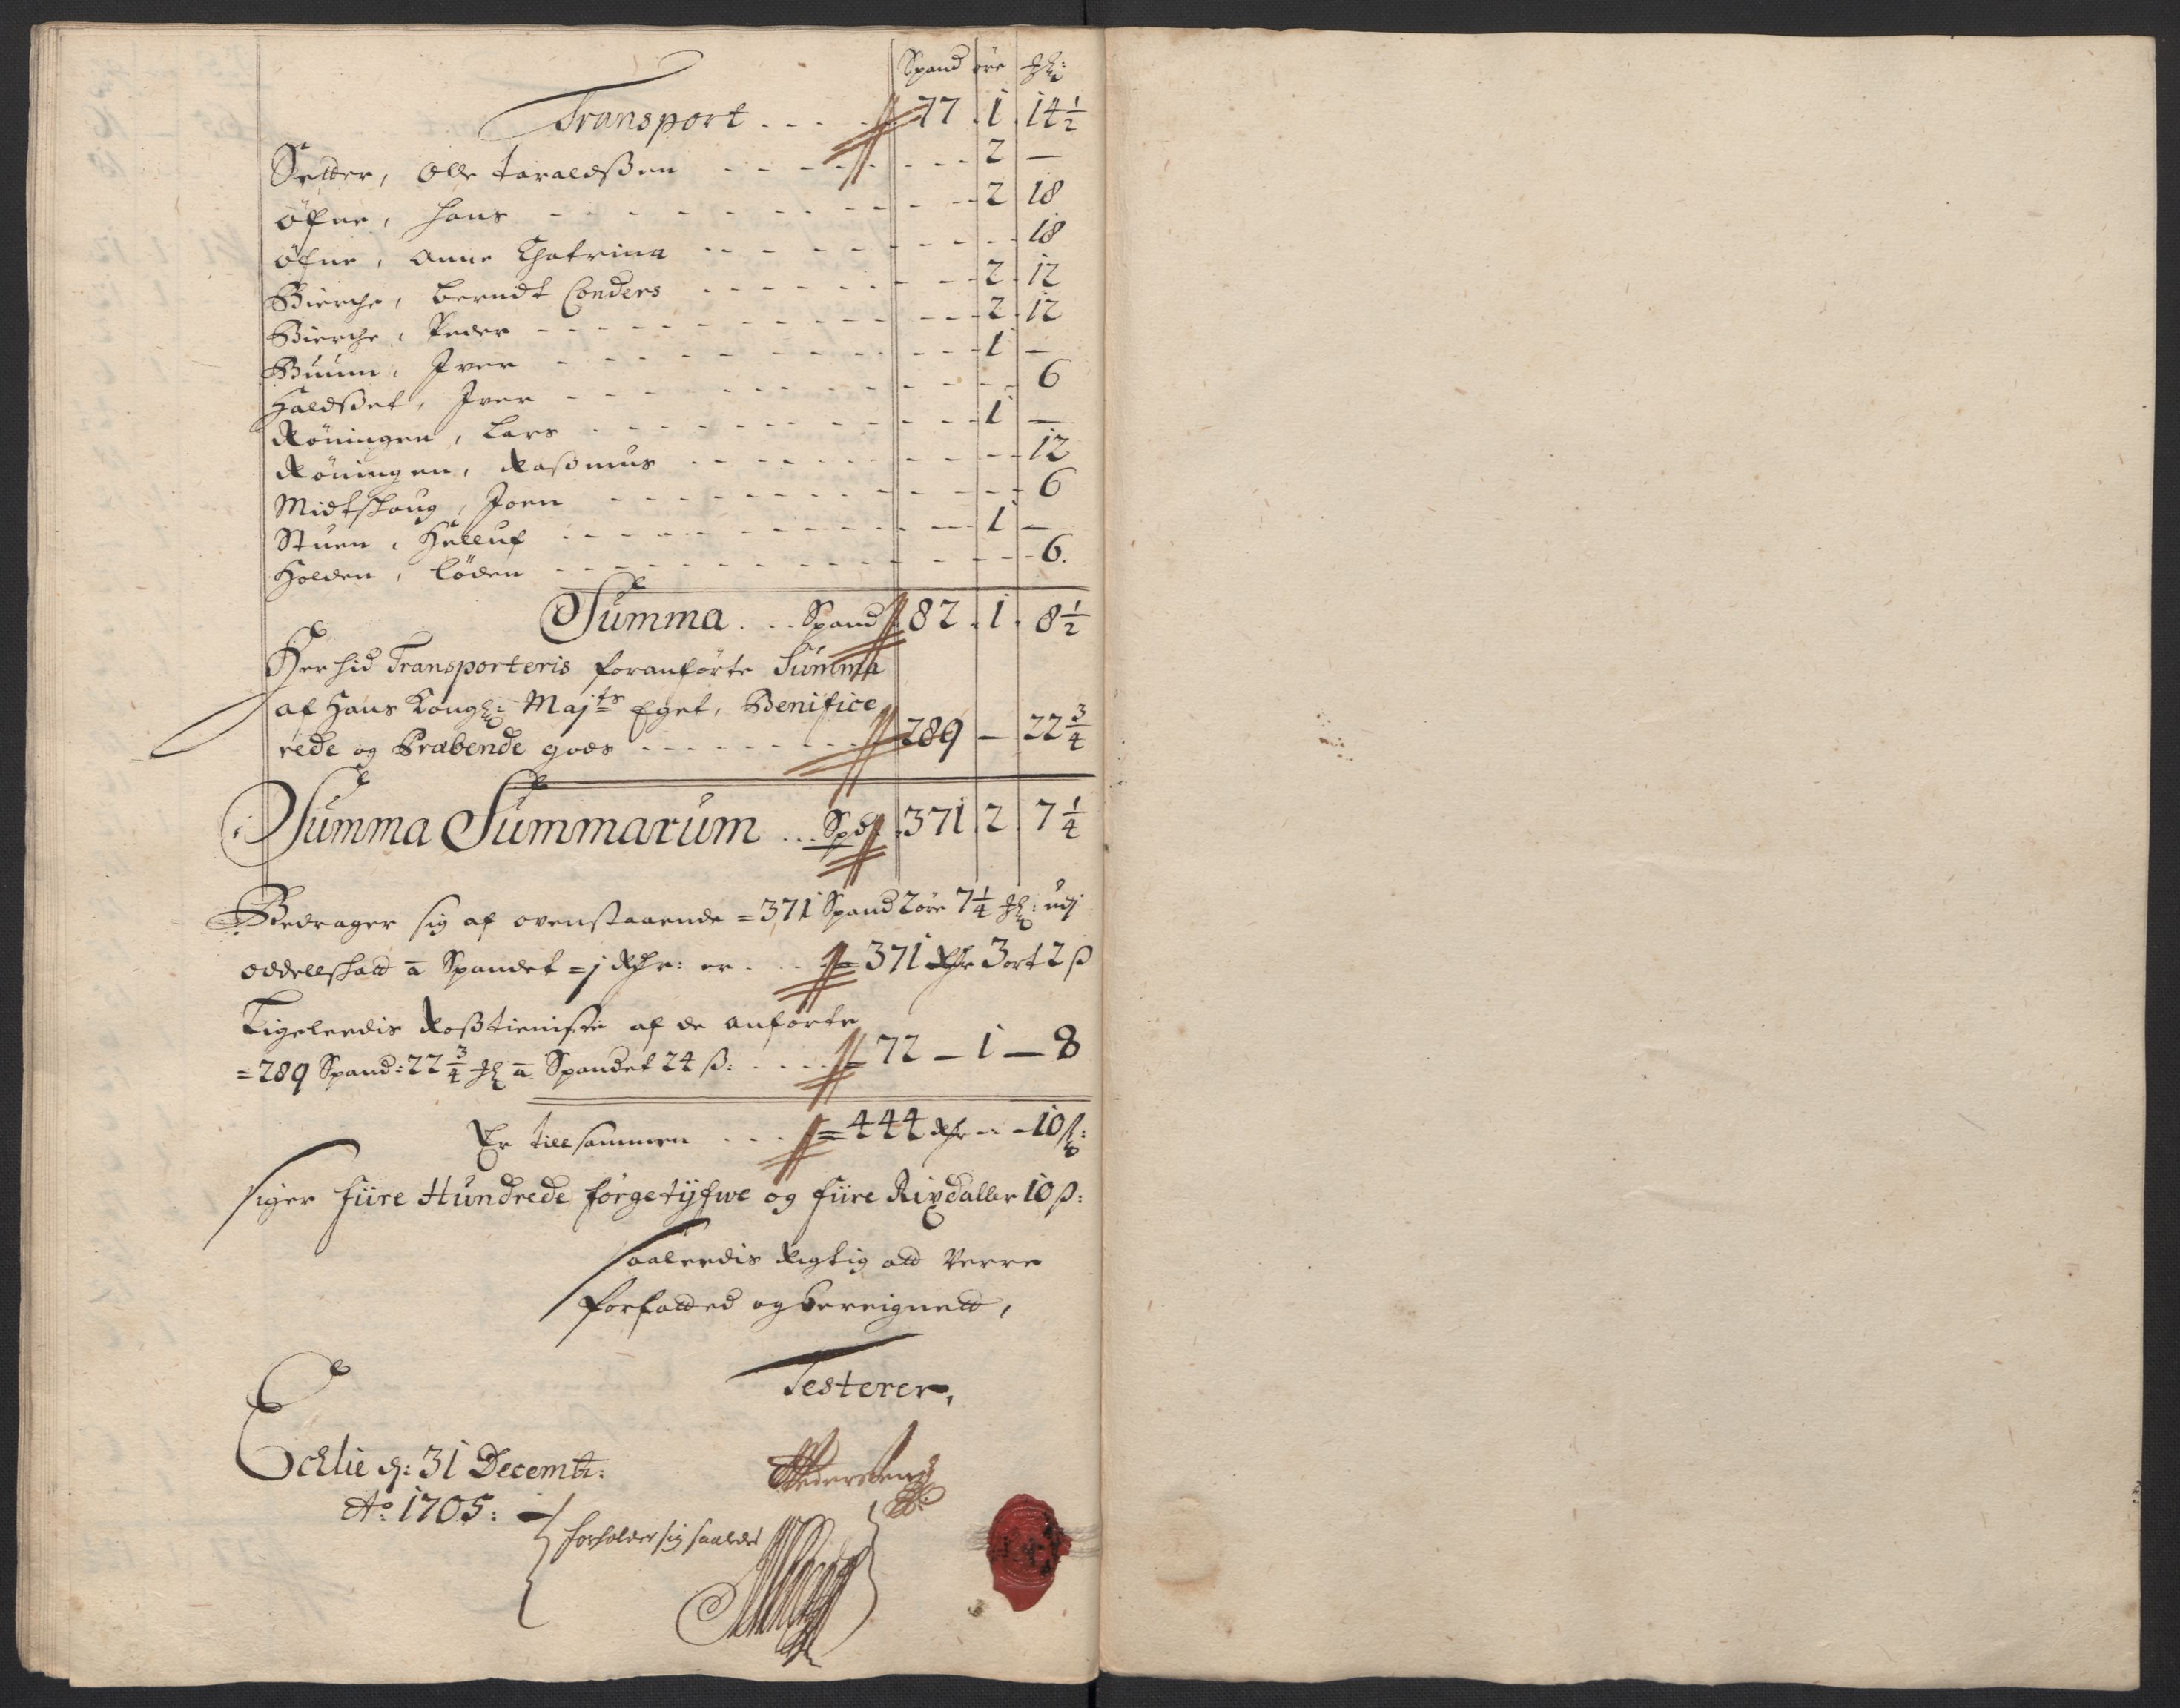 Spand øre
Transport . . . . 77 . 1 . 14½
Setter, Olle taraldßen - - - - 2 —
Øfne, Hans - - - - 2 18
Øfne, Anne Chatrina - - - - 18
Bierche, berndt Conders - - - - 2 . 12
Bierche, Peder - - - - 2 . 12
Buum, Iver - - - - 1 —
Haldßet, Iver - - - - 6
Röningen, Lars - - - - 1 —
Röningen, Raßmus - - - - 12
Midtskoug, Joen - - - - 6
Stuen, Helluf - - - - 1 —
Holden, Löden - - - - 6.
Summa . . . Spand 82 . 1 . 8½
Her hid Transporteris foranförte Summa
af Hans Kongl: Majts Eget, Benifice
rede og Præbende gods - - - - 289 — 22¾
Summa Summarum . . . Spd 371 . 2 . 7¼
Bedrager sig af ovenstaaende = 371 Spand 2 øre 7¼ udj
oddellskatt a Spandet = j Rdr: er . . . . = 371 Rdr 3 ort 2 ß
Ligeleedis Roßtieniste af de anførte
= 289 Spand: 22¾ a Spandet 24 ß: . . . . = 72 — 1 — 8
Er tillsammen . . . . = 444 Rdr - - 10 ß:
siger fiire Hundrede förgetÿfwe og fiire Rixdaller 10 ß:
saaleedis Rigtig att Verre
forfatted og bereignett,
Testerer,
Ecklie d: 31 Decembr:
Ao: 1705:
forholder sig saaledes